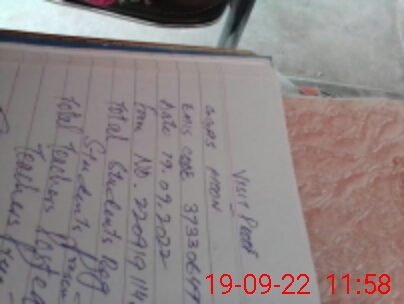 Visit Proof
EMIS CODE 3733064
Date 19.09.2022
from NO. 220919114
Total Students Reg
Students presen
Total Teachers Posted
Teachers presen
19-09-22 11:58